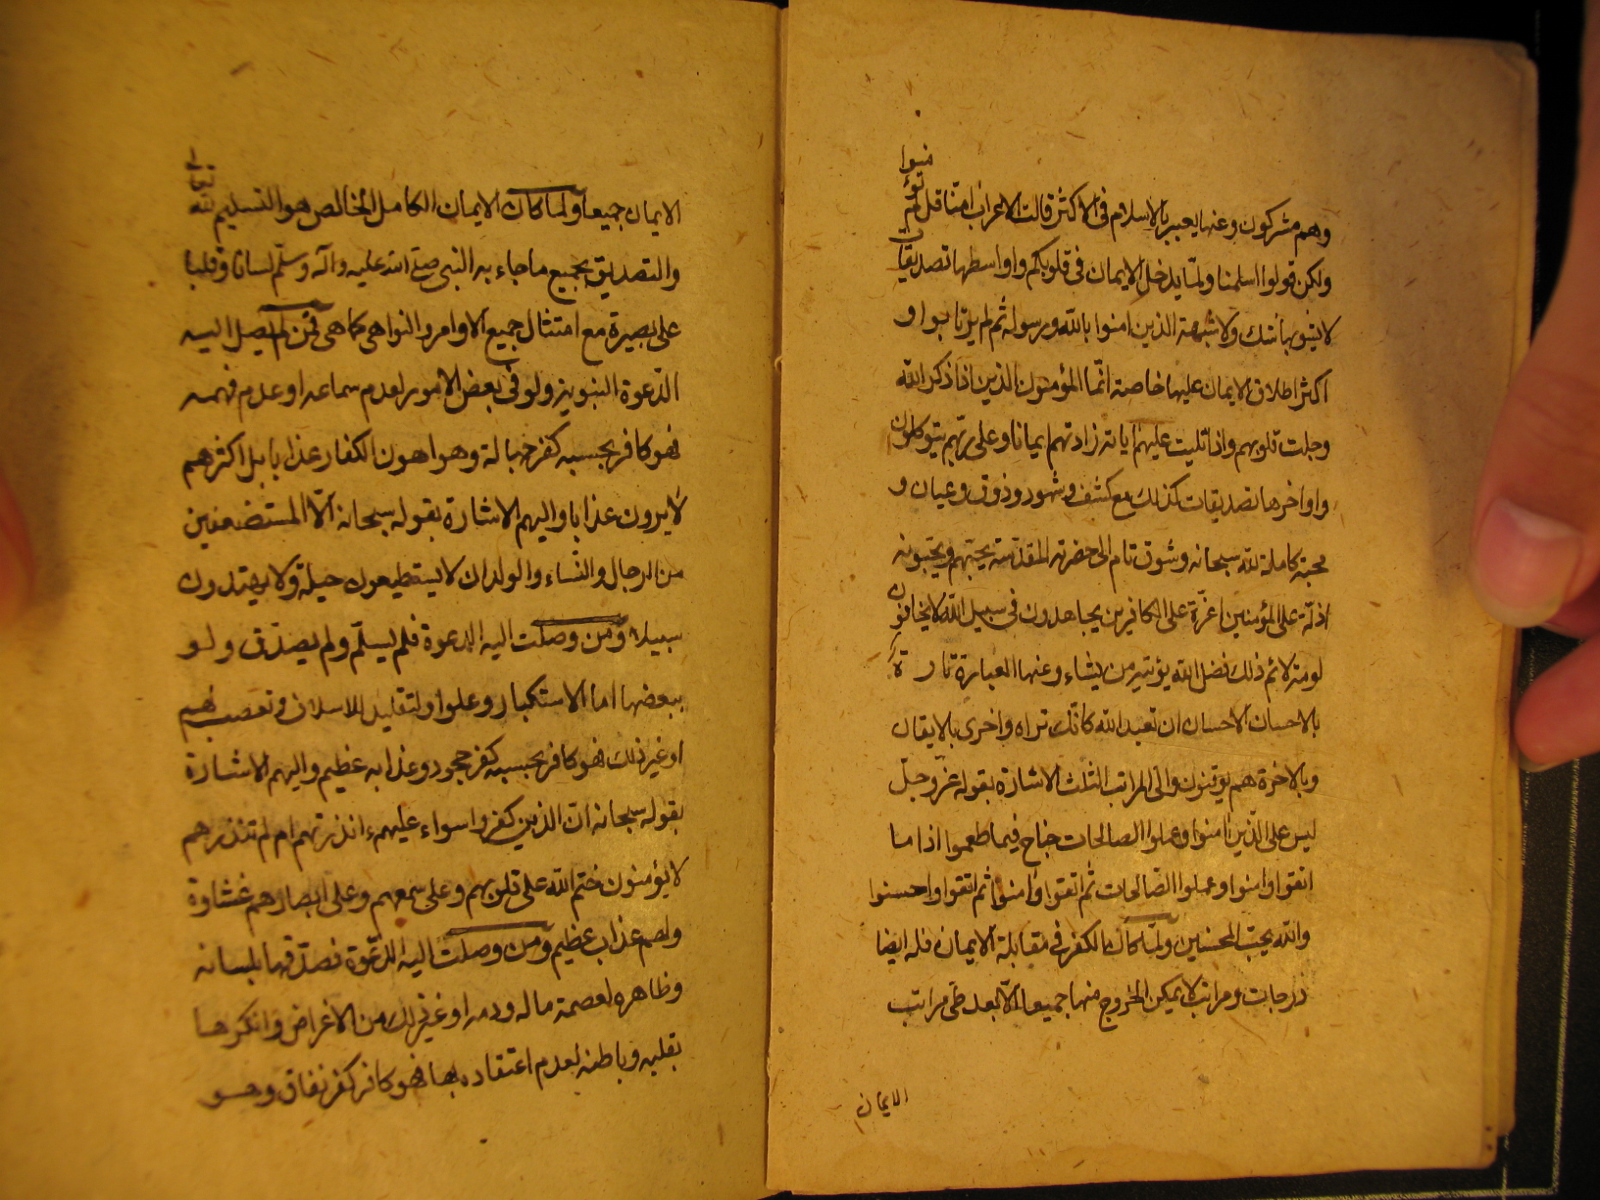 وهم مشركون وعنها يعبر بالاسلام فى الاكثر قالت الاعراب امنا قل لم تؤمنوا
ولكن قولوا اسلمنا ولما يدخل الايمان فى قلوبكم واواسطها تصديقات
لا يشوبها شك ولا شبهة الذين امنوا بالله ورسوله ثم لم يرتابوا و
اكثر اطلاق الايمان عليها خاصة انما المؤمنون الذين اذا ذكر الله
وجلت قلوبهم واذا تليت عليهم اياته زادتهم ايمانا وعلى ربهم يتوكلون
واواخرها تصديقات كذلك مع كشف وشهود وذوق وعيان و
محبة كاملة لله سبحانه وشوق تام الى حضرته المقدسة يحبهم ويحبونه
اذلة على المؤمنين اعزة على الكافرين يجاهدون فى سبيل الله لا يخافون
لومة لائم ذلك فضل الله يؤتيه من يشاء وعنها العبارة تارة
بالاحسان الاحسان ان تعبد الله كانك تراه واخرى بالايقان
وبالاخرة هم يوقنون والى المراتب الثلث الاشارة بقوله عز وجل
ليس على الذين امنوا وعملوا الصالحات جناح فيما طعموا اذا ما
اتقوا وامنوا وعملوا الصالحات ثم اتقوا وامنوا ثم اتقوا واحسنوا
والله يحب المحسنين ولما كان الكفر فى مقابلة الايمان فله ايضا
درجات ومراتب لا يمكن الخروج منها جميعا الا بعد طى مراتب
الايمان
الايمان جميعا ولما كان الايمان الكامل الخالص هو التسليم لله تعالى
والتصديق بجميع ما جاء به النبى صلى الله عليه وآله وسلم لسانا وقلبا
على بصيرة مع امتثال جميع الاوامر والنواهى كما هى فمن لم يصل اليه
الدعوة النبوية ولو فى بعض الامور لعدم سماعه او عدم فهمه
فهو كافر بحسبه كفر جهالة وهو اهون الكفار عذابا بل اكثرهم
لا يرون عذابا واليهم الاشارة بقوله سبحانه الا المستضعفين
من الرجال والنساء والولدان لا يستطيعون حيلة ولا يهتدون
سبيلا ومن وصلت اليه الدعوة فلم يسلم ولم يصدق ولو
ببعضها اما الاستكبار وعلو او لتقليد للاسلاف وتعصب لهم
او غير ذلك فهو كافر بحسبه كفر جحود وعذابه عظيم واليهم الاشارة
بقوله سبحانه ان الذين كفروا سواء عليهم ءانذرتهم ام لم تنذرهم
لا يؤمنون ختم الله على قلوبهم وعلى سمعهم وعلى ابصارهم غشاوة
ولهم عذاب عظيم ومن وصلت اليه الدعوة فصدقها بلسانه
وظاهره لعصمة ماله ودمه او غير ذلك من الاغراض وانكرها
بقلبه وباطنه لعدم اعتقاده بها فهو كافر كفر نفاق وهو